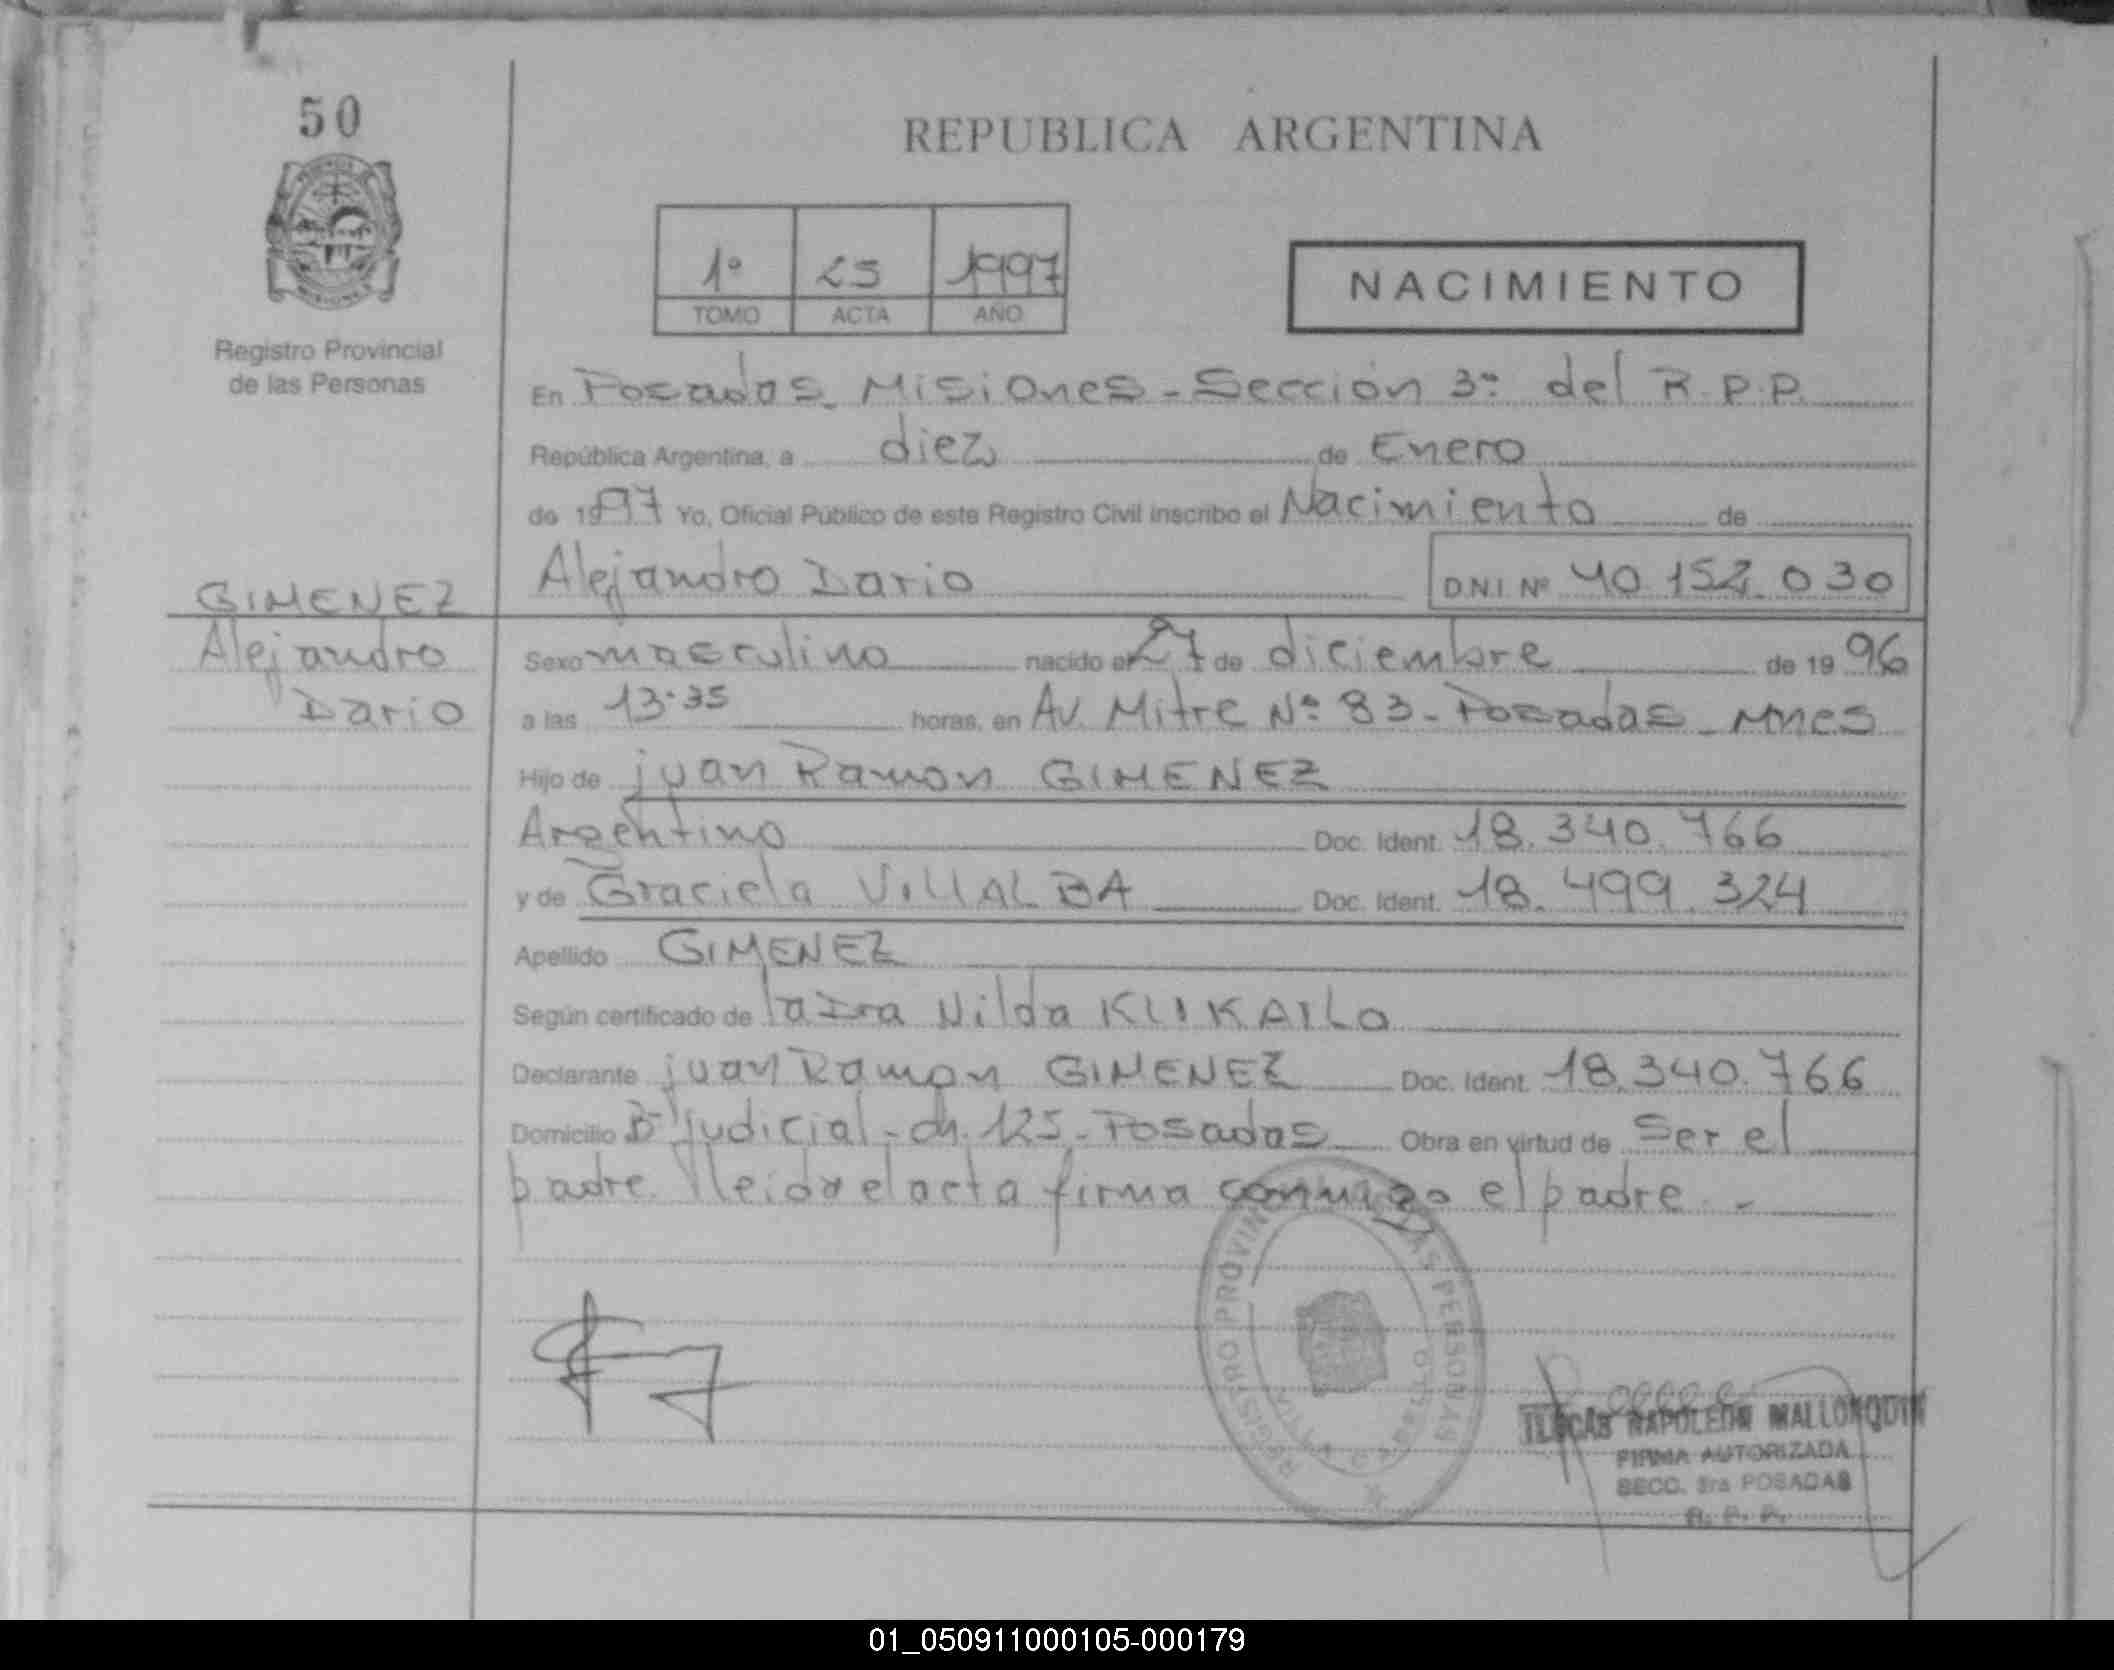 50
REPUBLICA ARGENTINA
1º 25 1997
TOMO ACTA AÑO
NACIMIENTO
Registro Provincial
de las Personas
En Posadas Misiones - Sección 3º del R.P.P.
República Argentina, a diez de Enero
de 1997 Yo, Oficial Público de este Registro Civil inscribo el Nacimiento de
Alejandro Dario D.N.I. Nº 40.152.030
GIMENEZ
Alejandro
Dario
Sexo masculino nacido el 27 de diciembre de 1996
a las 13.35 horas, en Av. Mitre Nº 83 - Posadas - Mnes
Hijo de juan Ramon GIMENEZ
Argentino Doc. Ident. 18.340.766
y de Graciela VillALBA Doc. Ident. 18.499.324
Apellido GIMENEZ
Según certificado de la Dra Nilda KLIKAILO
Declarante juan Ramon GIMENEZ Doc. Ident. 18.340.766
Domicilio Bº judicial - ch. 125 - Posadas Obra en virtud de Ser el
padre. lleida el acta firma conmigo el padre. -
REGISTRO PROVINCIAL DE LAS PERSONAS
LUCAS NAPOLEON MALLORQUIN
FIRMA AUTORIZADA
SECC. 3ra POSADAS
R. P. P.
01_050911000105-000179